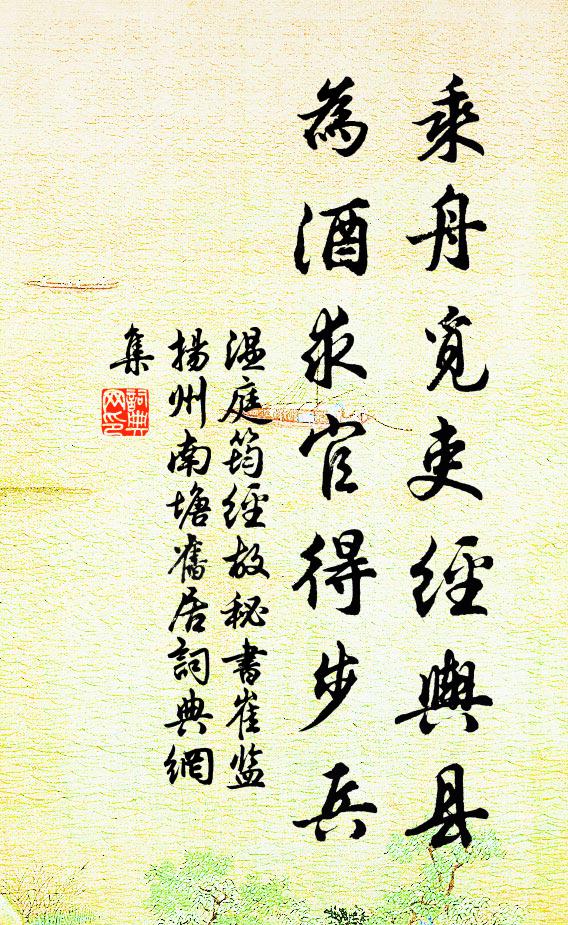 乘舟覓吏經輿县
為酒求官得步兵
温庭筠經故秘書崔监
揚州南塘舊居詞典網
集
詞典
网印